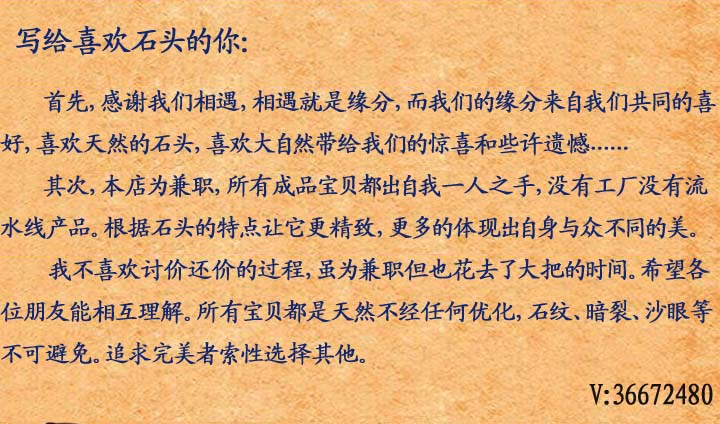 写给喜欢石头的你:
首先, 感谢我们相遇, 相遇就是缘分, 而我们的缘分来自我们共同的喜
好, 喜欢天然的石头, 喜欢大自然带给我们的惊喜和些许遗憾......
其次, 本店为兼职, 所有成品宝贝都出自我一人之手, 没有工厂没有流
水线产品。根据石头的特点让它更精致, 更多的体现出自身与众不同的美。
我不喜欢讨价还价的过程, 虽为兼职但也花去了大把的时间。希望各
位朋友能相互理解。所有宝贝都是天然不经任何优化, 石纹、暗裂、沙眼等
不可避免。追求完美者索性选择其他。
V:36672480